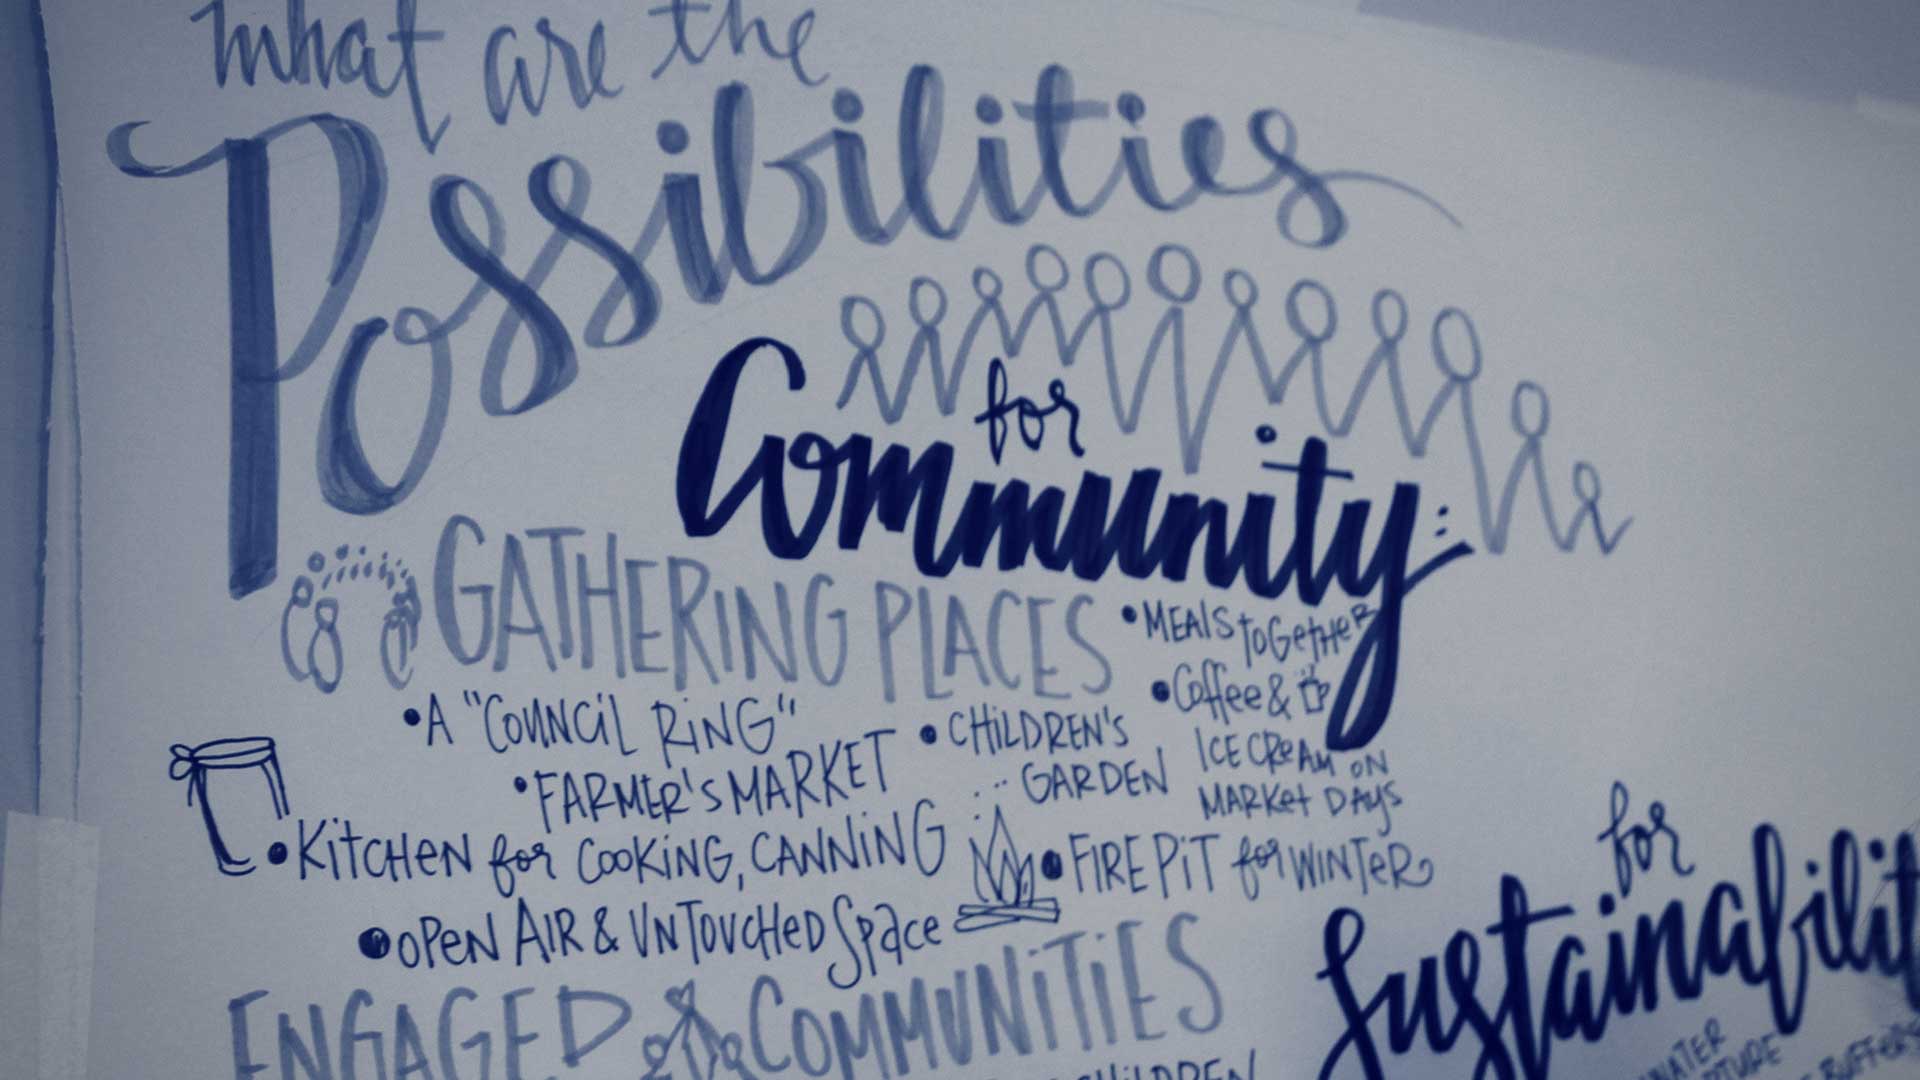 What are the
Possibilities
for
Community:
GATHERING PLACES
• A "COUNCIL RING"
• FARMER'S MARKET
• KITCHEN for COOKING, CANNING
• OPEN AIR & UNTOUCHED SPACE
• CHILDREN'S
GARDEN
• FIRE PIT for WINTER
• MEALS TOGETHER
• Coffee &
ICE CREAM ON
MARKET DAYS
ENGAGED COMMUNITIES
CHILDREN
for
Sustainabilit
WATER
BUFFERS